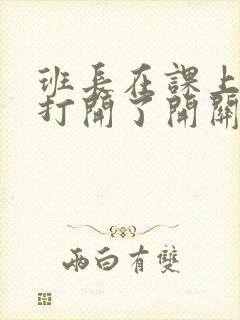 班長在課上
打開了開關
兩白有雙